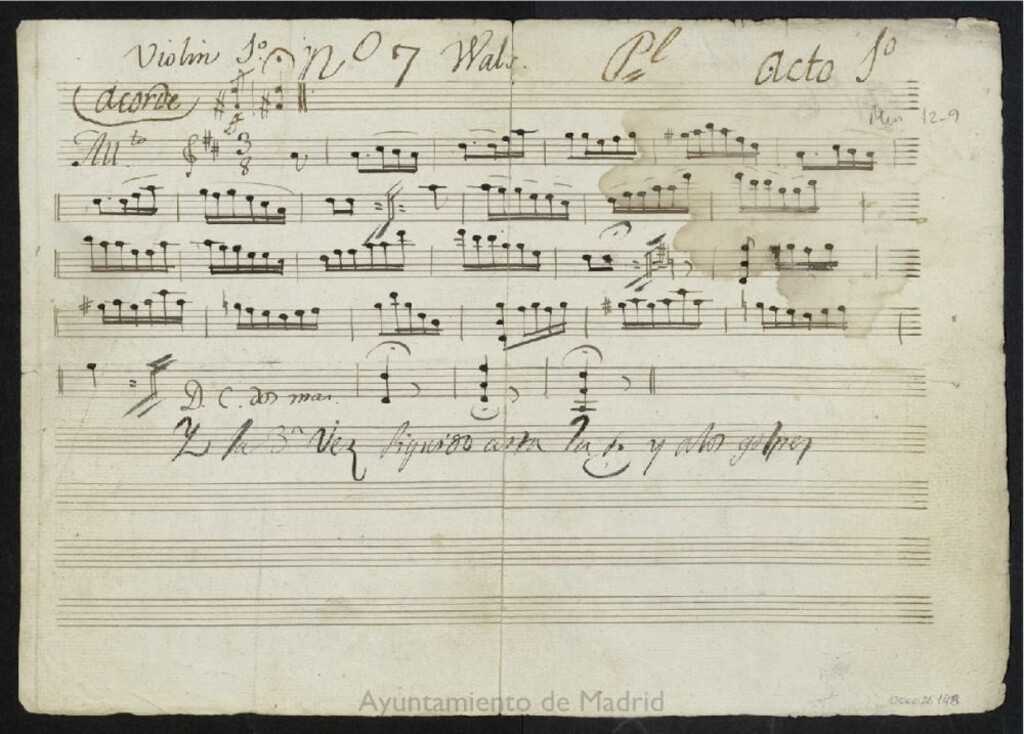 Violin 1º Nº 7 Wals. Pl Acto 1º
acorde
Mus 12-9
All.to 3 8
D. C. dos mas.
Y la 3ª Vez siguido asta la y a los golpes
Ayuntamiento de Madrid